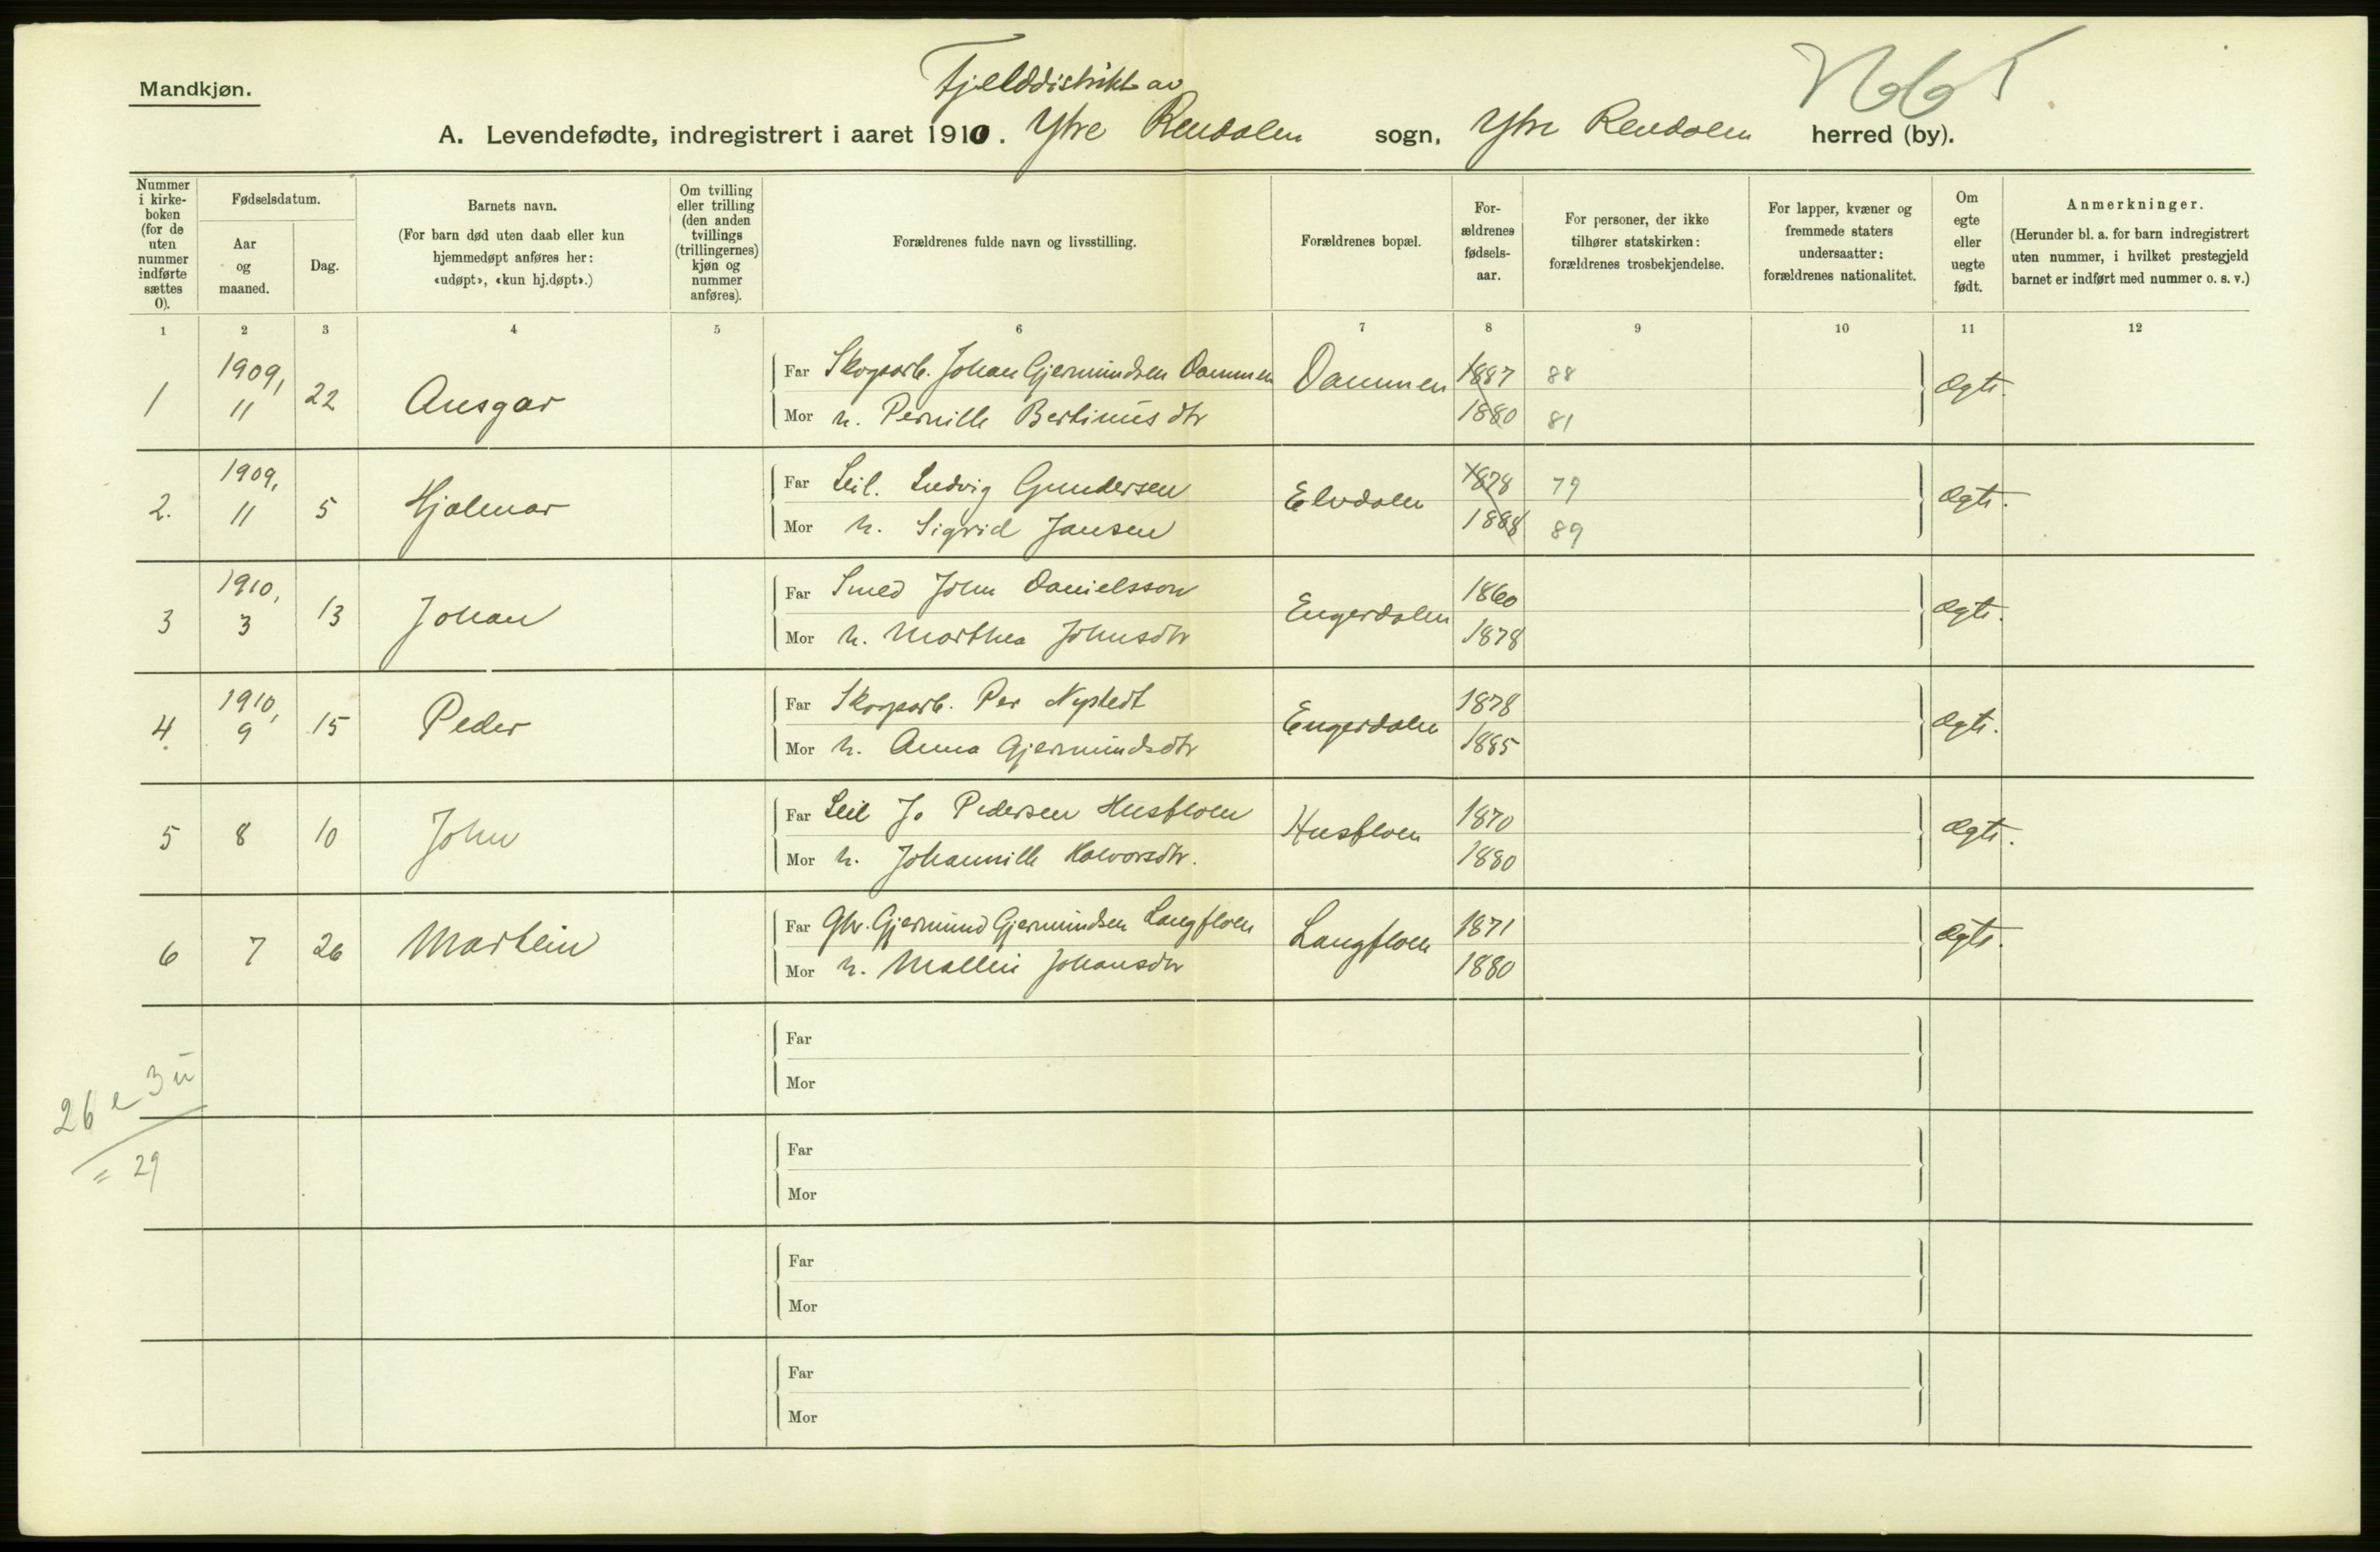 Mandkjøn.
Fjelddistrikt av
A. Levendefødte, indregistrert i aaret 1910. Ytre Rendalen sogn, Ytre Rendalen herred (by).
Nummer i kirke-boken (for de uten nummer indførte sættes 0).
Fødselsdatum.
Aar og maaned.
Dag.
Barnets navn.
(For barn død uten daab eller kun hjemmedøpt anføres her: «udøpt», «kun hj.døpt».)
Om tvilling eller trilling (den anden tvillings (trillingernes) kjøn og nummer anføres).
Forældrenes fulde navn og livsstilling.
Forældrenes bopæl.
For-ældrenes fødsels-aar.
For personer, der ikke tilhører statskirken: forældrenes trosbekjendelse.
For lapper, kvæner og fremmede staters undersaatter: forældrenes nationalitet.
Om egte eller uegte født.
Anmerkninger.
(Herunder bl. a. for barn indregistrert uten nummer, i hvilket prestegjeld barnet er indført med nummer o. s. v.)
1 2 3 4 5 6 7 8 9 10 11 12
1 1909, 11 22 Ansgar Far Skogsarb. Johan Gjermundsen Dammen Dammen 1887 88 Ægte.
Mor h. Pernille Bertinusdtr 1880 81
2. 1909, 11 5 Hjalmar Far Leil. Ludvig Gundersen Elvdalen 1878 79 Ægte.
Mor h. Sigrid Jansen 1888 89
3 1910, 3 13 Johan Far Smed John Danielsson Engerdalen 1860 Ægte.
Mor h. Marthea Johnsdtr 1878
4. 1910, 9 15 Peder Far Skogsarb. Per Nystedt Engerdalen 1878 Ægte.
Mor h. Anna Gjermundsdtr 1885
5 8 10 John Far Leil Jo Pedersen Husfloen Husfloen 1870 Ægte.
Mor h. Johannille Halvorsdtr. 1880
6 7 26 Martein Far Gbr. Gjermund Gjermundsen Langfloen Langfloen 1871 Ægte.
Mor h. Mallin Johansdtr 1880
Far
Mor
26 e 3 u
= 29
Far
Mor
Far
Mor
Far
Mor